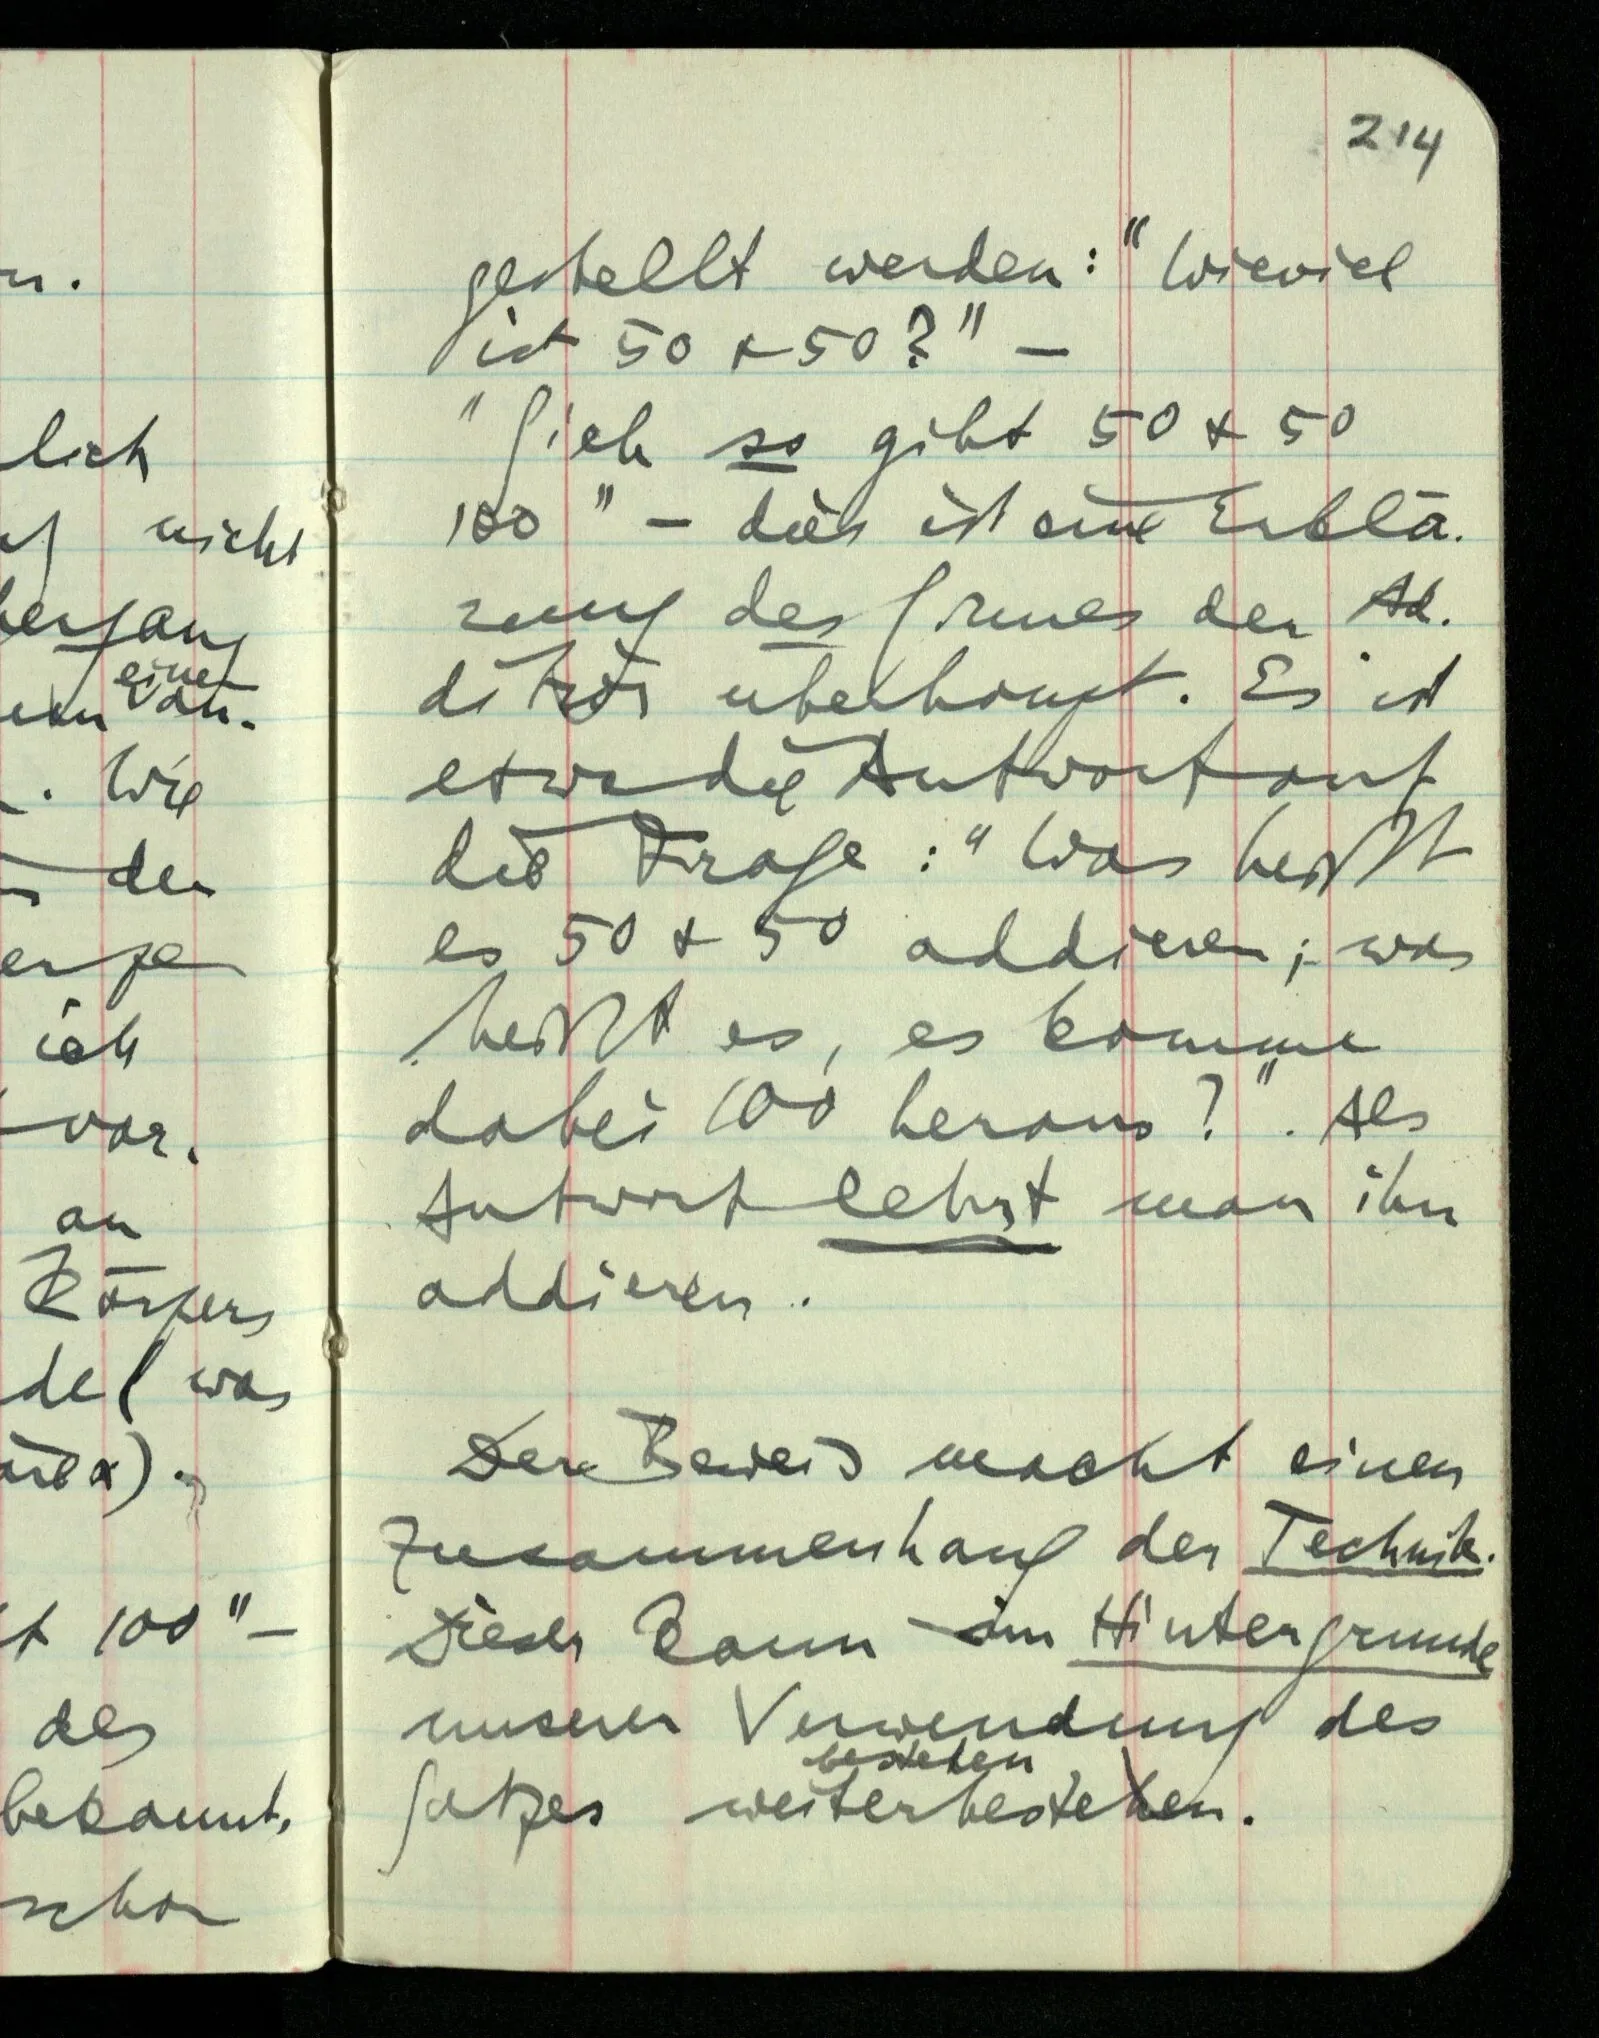 n.
lich
nicht
bergang
einer
. Wie
den
ich
vor.
an
Körpers
de (was
t 100" –
des
bekannt,
schon
214
gestellt werden: "Wieviel
ist 50 + 50?" –
"Sieh so gibt 50 + 50
100" – dies ist eine Erklä-
rung des Sinnes der Ad-
dition überhaupt. Es ist
etwa die Antwort auf
die Frage: "Was heißt
es 50 + 50 addieren; was
heißt es, es komme
dabei 100 heraus?". Als
Antwort lehrt man ihn
addieren.
Der Beweis macht einen
Zusammenhang der Technik.
Dieser kann im Hintergrunde
unserer Verwendung des
bestehen
Satzes weiterbestehen.